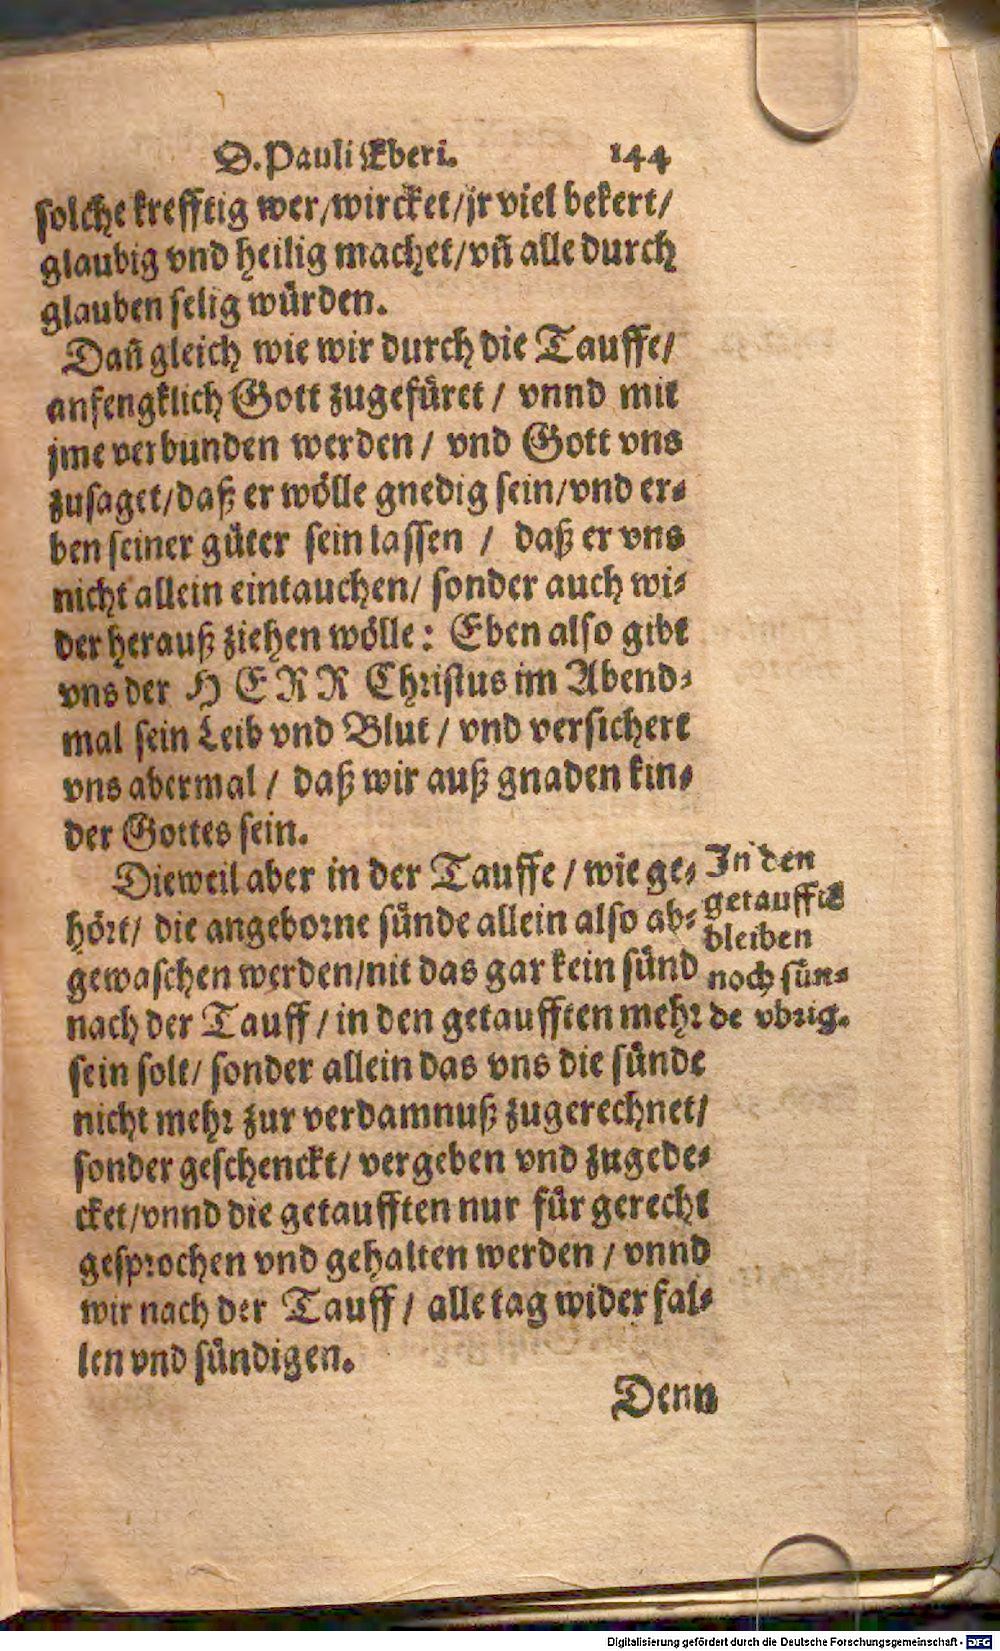 D. Pauli Eberi. 144
solche krefftig wer/wircket/jr viel bekert/
glaubig vnd heilig machet/vn̄ alle durch
glauben selig würden.
Dan̄ gleich wie wir durch die Tauffe/
anfengklich Gott zugefüret / vnnd mit
jme verbunden werden / vnd Gott vns
zusaget/daß er wölle gnedig sein/vnd er-
ben seiner güter sein lassen / daß er vns
nicht allein eintauchen/ sonder auch wi-
der herauß ziehen wölle: Eben also gibt
vns der HERR Christus im Abend-
mal sein Leib vnd Blut / vnd versichert
vns abermal / daß wir auß gnaden kin-
der Gottes sein.
Dieweil aber in der Tauffe / wie ge-
hört/ die angeborne sünde allein also ab-
gewaschen werden/nit das gar kein sünd
nach der Tauff / in den getaufften mehr
sein solt/ sonder allein das vns die sünde
nicht mehr zur verdamnuß zugerechnet/
sonder geschenckt/ vergeben vnd zugede-
cket/vnnd die getaufften nur für gerecht
gesprochen vnd gehalten werden / vnnd
wir nach der Tauff / alle tag wider fal-
len vnd sündigen.
In den
getaufftē
bleiben
noch sün-
de vbrig.
Denn
Digitalisierung gefördert durch die Deutsche Forschungsgemeinschaft - DFG